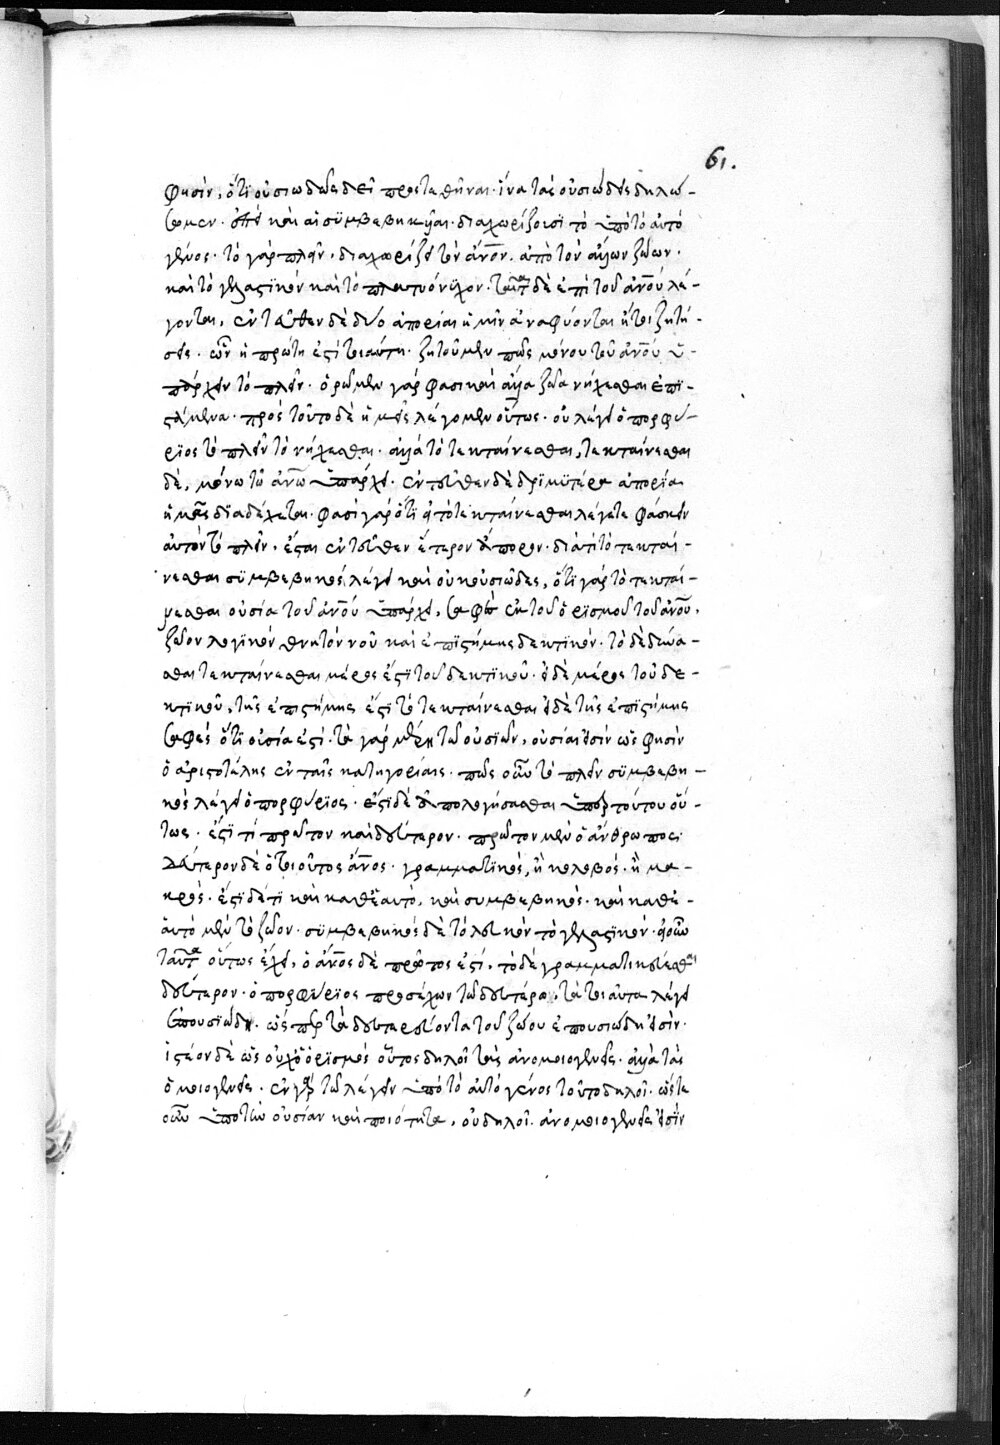 61.
φησὶν, ὅτι οὐσιωδῶς δεῖ προστεθῆναι· ἵνα τὰς οὐσιώδεις δηλώ-
σωμεν· ἐπεὶ καὶ αἱ συμβεβηκυῖαι διαχωρίζουσι τὸ ὑπὸ τὸ αὐτὸ
γένος· τὸ γὰρ πλεῖν, διαχωρίζει τὸν ἄνον, ἀπὸ τῶν ἄλλων ζώων·
καὶ τὸ γελαστικὸν καὶ τὸ πλατυόνυχον· ταῦτα δὲ ἐπὶ τοῦ ἀνού λέ-
γονται, ἐνταῦθεν δὲ δύο ἀπορίαι ἡμῖν ἀναφύονται ἤτοι ζητή-
σεις· ὧν ἡ πρώτη ἐστὶ τοιαύτη· ζητοῦμεν πῶς μόνου τοῦ ἀνού ὑ-
πάρχειν τὸ πλεῖν· ὁρῶμεν γάρ φασι καὶ ἄλλα ζῶα νήχεσθαι ἐπϊ-
στάμενα· πρὸς τοῦτο δὲ ἡμεῖς λέγομεν οὕτως· οὐ λέγει ὁ πορφύ-
ριος τὸ πλεῖν τὸ νήχεσθαι· ἀλλὰ τὸ τεκταίνεσθαι, τεκταίνεσθαι
δὲ, μόνω τῶ ἀνω ὑπάρχει· ἐντεῦθεν δὲ δριμυτέρα ἀπορία
ἡμᾶς διαδέχεται· φασὶ γὰρ ὅτι εἰ τὸ τεκταίνεσθαι λέγετε φάσκειν
αὐτὸν τὸ πλεῖν, ἔσται ἐντεῦθεν ἕτερον ἄπορον· διὰ τί τὸ τεκταί-
νεσθαι συμβεβηκὸς λέγει καὶ οὐκ οὐσιῶδες, ὅτι γὰρ τὸ τεκταί-
νεσθαι οὐσία τοῦ ἀνού ὑπάρχει, σαφὲς ἐκ τοῦ ὁρισμοῦ τοῦ ἀνού,
ζῶον λογικὸν θνητὸν νοῦ καὶ ἐπιστήμης δεκτικόν· τὸ δὲ δύνα-
σθαι τεκταίνεσθαι μέρος ἐστὶ τοῦ δεκτικοῦ· εἰ δὲ μέρος τοῦ δε-
κτικοῦ, τῆς ἐπιστήμης ἐστὶ τὸ τεκταίνεσθαι εἰ δὲ τῆς ἐπιστήμης
σαφὲς ὅτι οὐσία ἐστί· τὰ γὰρ μέρη τῶν οὐσιῶν, οὐσίαι εἰσὶν ὥς φησὶν
ὁ ἀριστοτέλης ἐν ταῖς κατηγορίαις· πῶς οὖν τὸ πλεῖν συμβεβη-
κὸς λέγει ὁ πορφύριος· ἔστι δὲ ἀπολογήσασθαι ὑπὲρ τούτου οὕ-
τως· ἐστί τι πρῶτον καὶ δεύτερον· πρῶτον μὲν ὁ ἄνθρωπος·
δεύτερον δὲ ὁ τοιοῦτος ἄνος· γραμματικὸς, ἢ κολοβός· ἢ μα-
κρός· ἔστι δέ τι καὶ καθ' ἑαυτὸ, καὶ συμβεβηκός· καὶ καθ' ἑ-
αυτὸ μὲν τὸ ζῶον· συμβεβηκὸς δὲ τὸ λευκὸν τὸ γελαστικόν· εἰ οὖν
ταῦτα οὕτως ἔχει, ὁ ἄνος δὲ πρῶτος ἐστί, τὸ δὲ γραμματικεύεσθαι
δεύτερον· ὁ πορφύριος προσέχων τῶ δευτέρω, τὰ τοιαῦτα λέγει
ἐπουσιώδη· ὥς περ τὰ δευτερεύοντα τοῦ ζώου ἐπουσιώδη εἰσίν·
ἰστέον δὲ ὡς οὐχ ὁ ὁρισμὸς οὗτος δηλοῖ τὰς ἀνομοιογενεῖς· ἀλλὰ τὰς
ὁμοιογενεῖς· ἐν γὰρ τῶ λέγειν ὑπὸ τὸ αὐτὸ γένος τοῦτο δηλοῖ· ὥστε
οὖν ὑπὸ τὴν οὐσίαν καὶ ποιότητα, οὐ δηλοῖ· ἀνομοιογενεῖς εἰσὶν